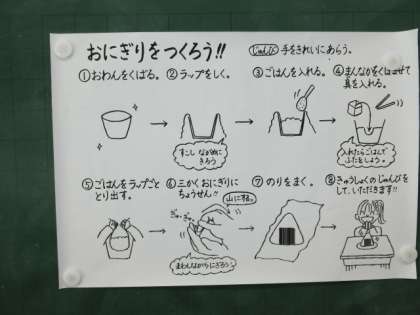 おにぎりをつくろう!!
じゅんび 手をきれいにあらう。
①おわんをくばる。
②ラップをしく。
すこし ながめに
きろう
③ごはんを入れる。
④まんなかをくぼませて
具を入れる。
入れたらごはんで
ふたをしよう。
⑤ごはんをラップごと
とり出す。
⑥三かくおにぎりに
ちょうせん!!
山に形。
ぎゅっ ぎゅっ
まわしながらにぎろう
⑦のりをまく。
⑧きゅうしょくのじゅんびを
して、いただきます!!